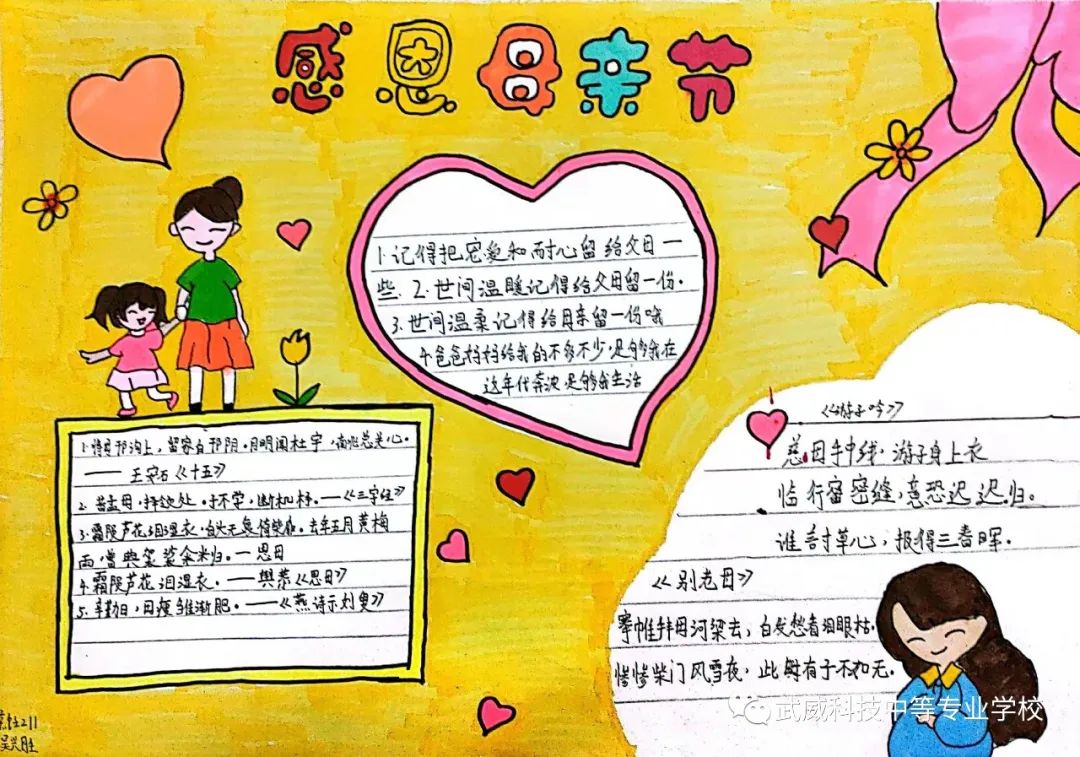 感恩母亲节
1.记得把宠爱和耐心留给父母一
些.2.世间温暖记得给父母留一份.
3.世间温柔记得给母亲留一份哦
4.爸爸妈妈给我的不多不少,足够我在
这年代奔波足够我生活
上,留家白邗阴.月明闻杜宇,南北总关心.
——王安石《十五》
2.昔孟母,择处.子不学,断机杼.——《三字经》
3.霜陨芦花泪湿衣.白头无复倚柴扉.去年五月黄梅
雨,曾典袈裟籴米归.—思母
4.霜陨芦花泪湿衣.——與恭《思母》
5.辛勤日,母瘦雏渐肥.——《燕诗示刘叟》
《游子吟》
慈母手中线.游子身上衣
临行密密缝,意恐迟迟归。
谁言寸草心,报得三春晖.
《别老母》
搴帷拜母河梁去,白发愁看泪眼枯.
惨惨柴门风雪夜,此时有子不如无.
武威科技中等专业学校